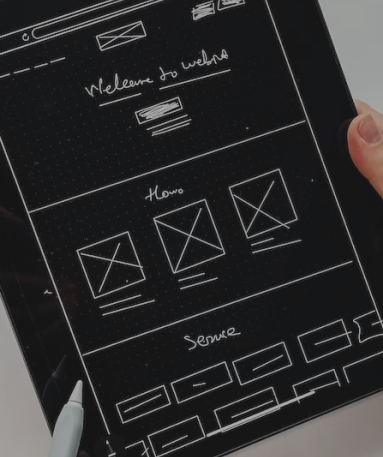 Welcome to webs
Home
Service